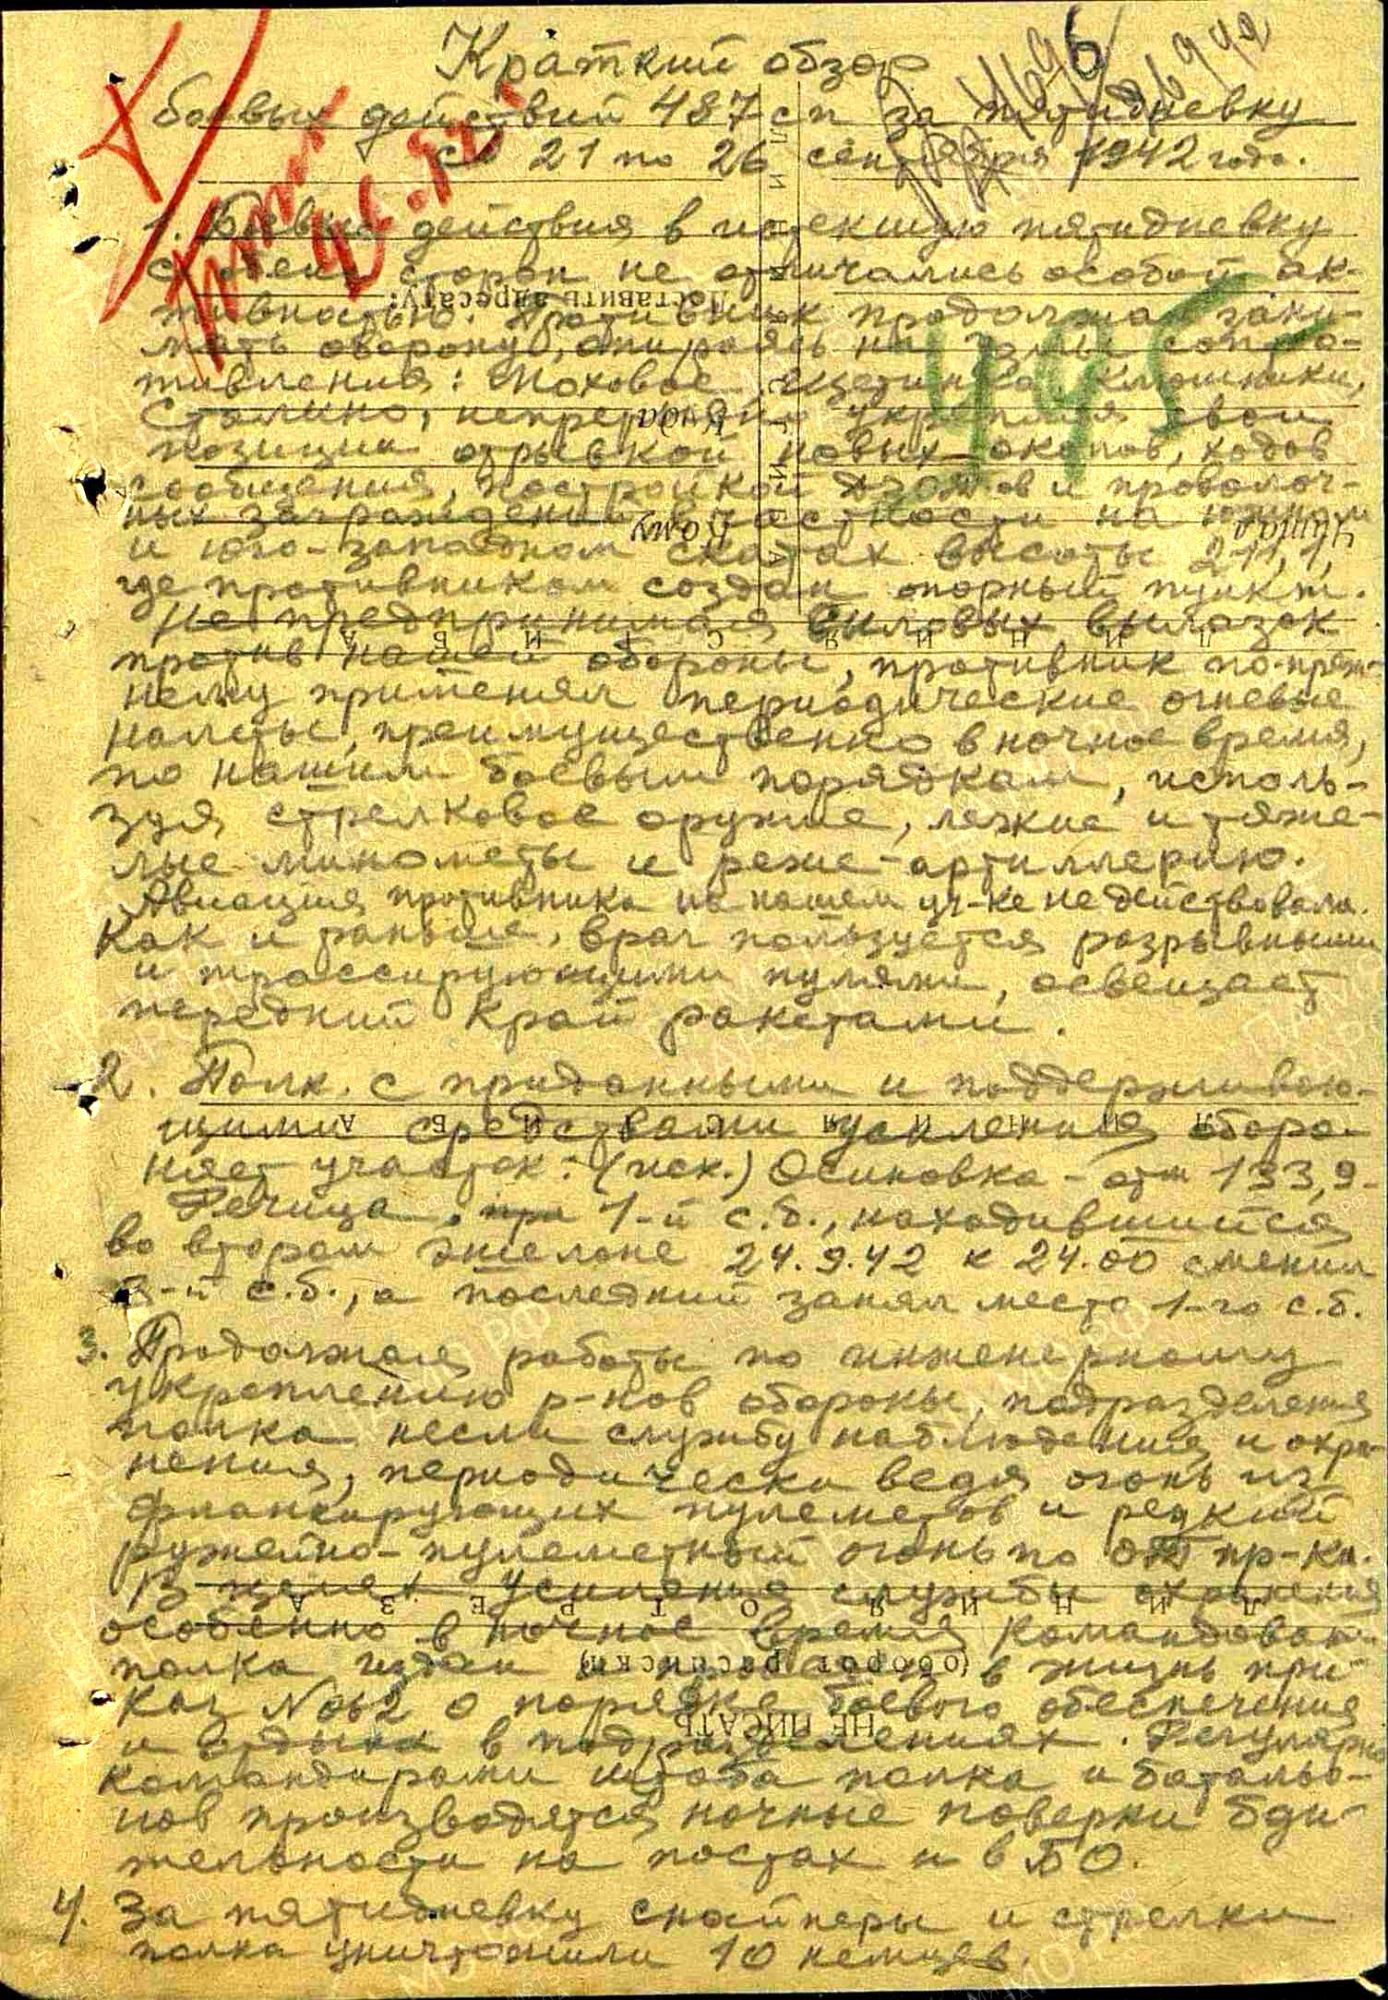 Краткий обзор
боевых действий 487 сп за пятидневку
с 21 по 26 сентября 1942 года.
1. Боевые действия в истекшую пятидневку
с обеих сторон не отличались особой ак-
тивностью. Противник продолжал зани-
мать оборону, опираясь на узлы сопро-
тивления: Моховое, Щетинка, Клюшники,
Сталино, непрерывно укрепляя свои
позиции отрывкой новых окопов, ходов
сообщения, постройкой дзотов и проволоч-
ных заграждений в частности на южном
и юго-западном скатах высоты 211,1,
где противником создан опорный пункт.
Не предпринимая силовых вылазок
против нашей обороны, противник по-преж-
нему применял периодические огневые
налеты, преимущественно в ночное время,
по нашим боевым порядкам, исполь-
зуя стрелковое оружие, легкие и тяже-
лые минометы и реже - артиллерию.
Авиация противника на нашем уч-ке не действовала.
Как и раньше, враг пользуется разрывными
и трассирующими пулями, освещает
передний край ракетами.
2. Полк с приданными и поддерживаю-
щими средствами усиления оборо-
няет участок: (иск.) Осиновка - отм 133,9 -
Речица. 1-й с.б., находившийся
во втором эшелоне 24.9.42 к 24.00 сменил
3-й с.б., а последний занял место 1-го с.б.
3. Продолжая работы по инженерному
укреплению р-нов обороны, подразделения
полка несли службу наблюдения и охра-
нения, периодически ведя огонь из
фланкирующих пулеметов и редкий
ружейно-пулеметный огонь по ОТ пр-ка.
В целях усиления службы охранения
особенно в ночное время командован.
полка издан в жизнь при-
каз № 062 о порядке боевого обеспечения
и отдыха в подразделениях. Регулярно
командирами штаба полка и батальо-
нов производятся ночные поверки бди-
тельности на постах и в БО.
4. За пятидневку снайперы и стрелки
полка уничтожили 10 немцев.
495
Доставить адресату:
Куда
Кому
Л И Н И Я С Г И Б А
Л И Н И Я С Г И Б А
Л И Н И Я О Т Р Е З А
(оборот расписки)
НЕ ПИСАТЬ